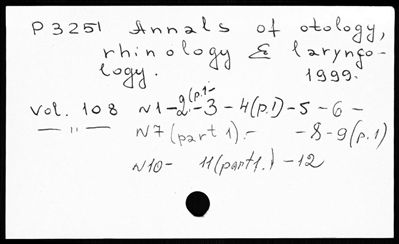 P 3251 Annals of otology,
rhinology & laryngo-
logy. 1999.
Vol. 108 N1-2(p.1-3-4(p.1)-5-6-
— " — N7(part 1).- -8-9(p.1)
N10- 11(part1.)-12